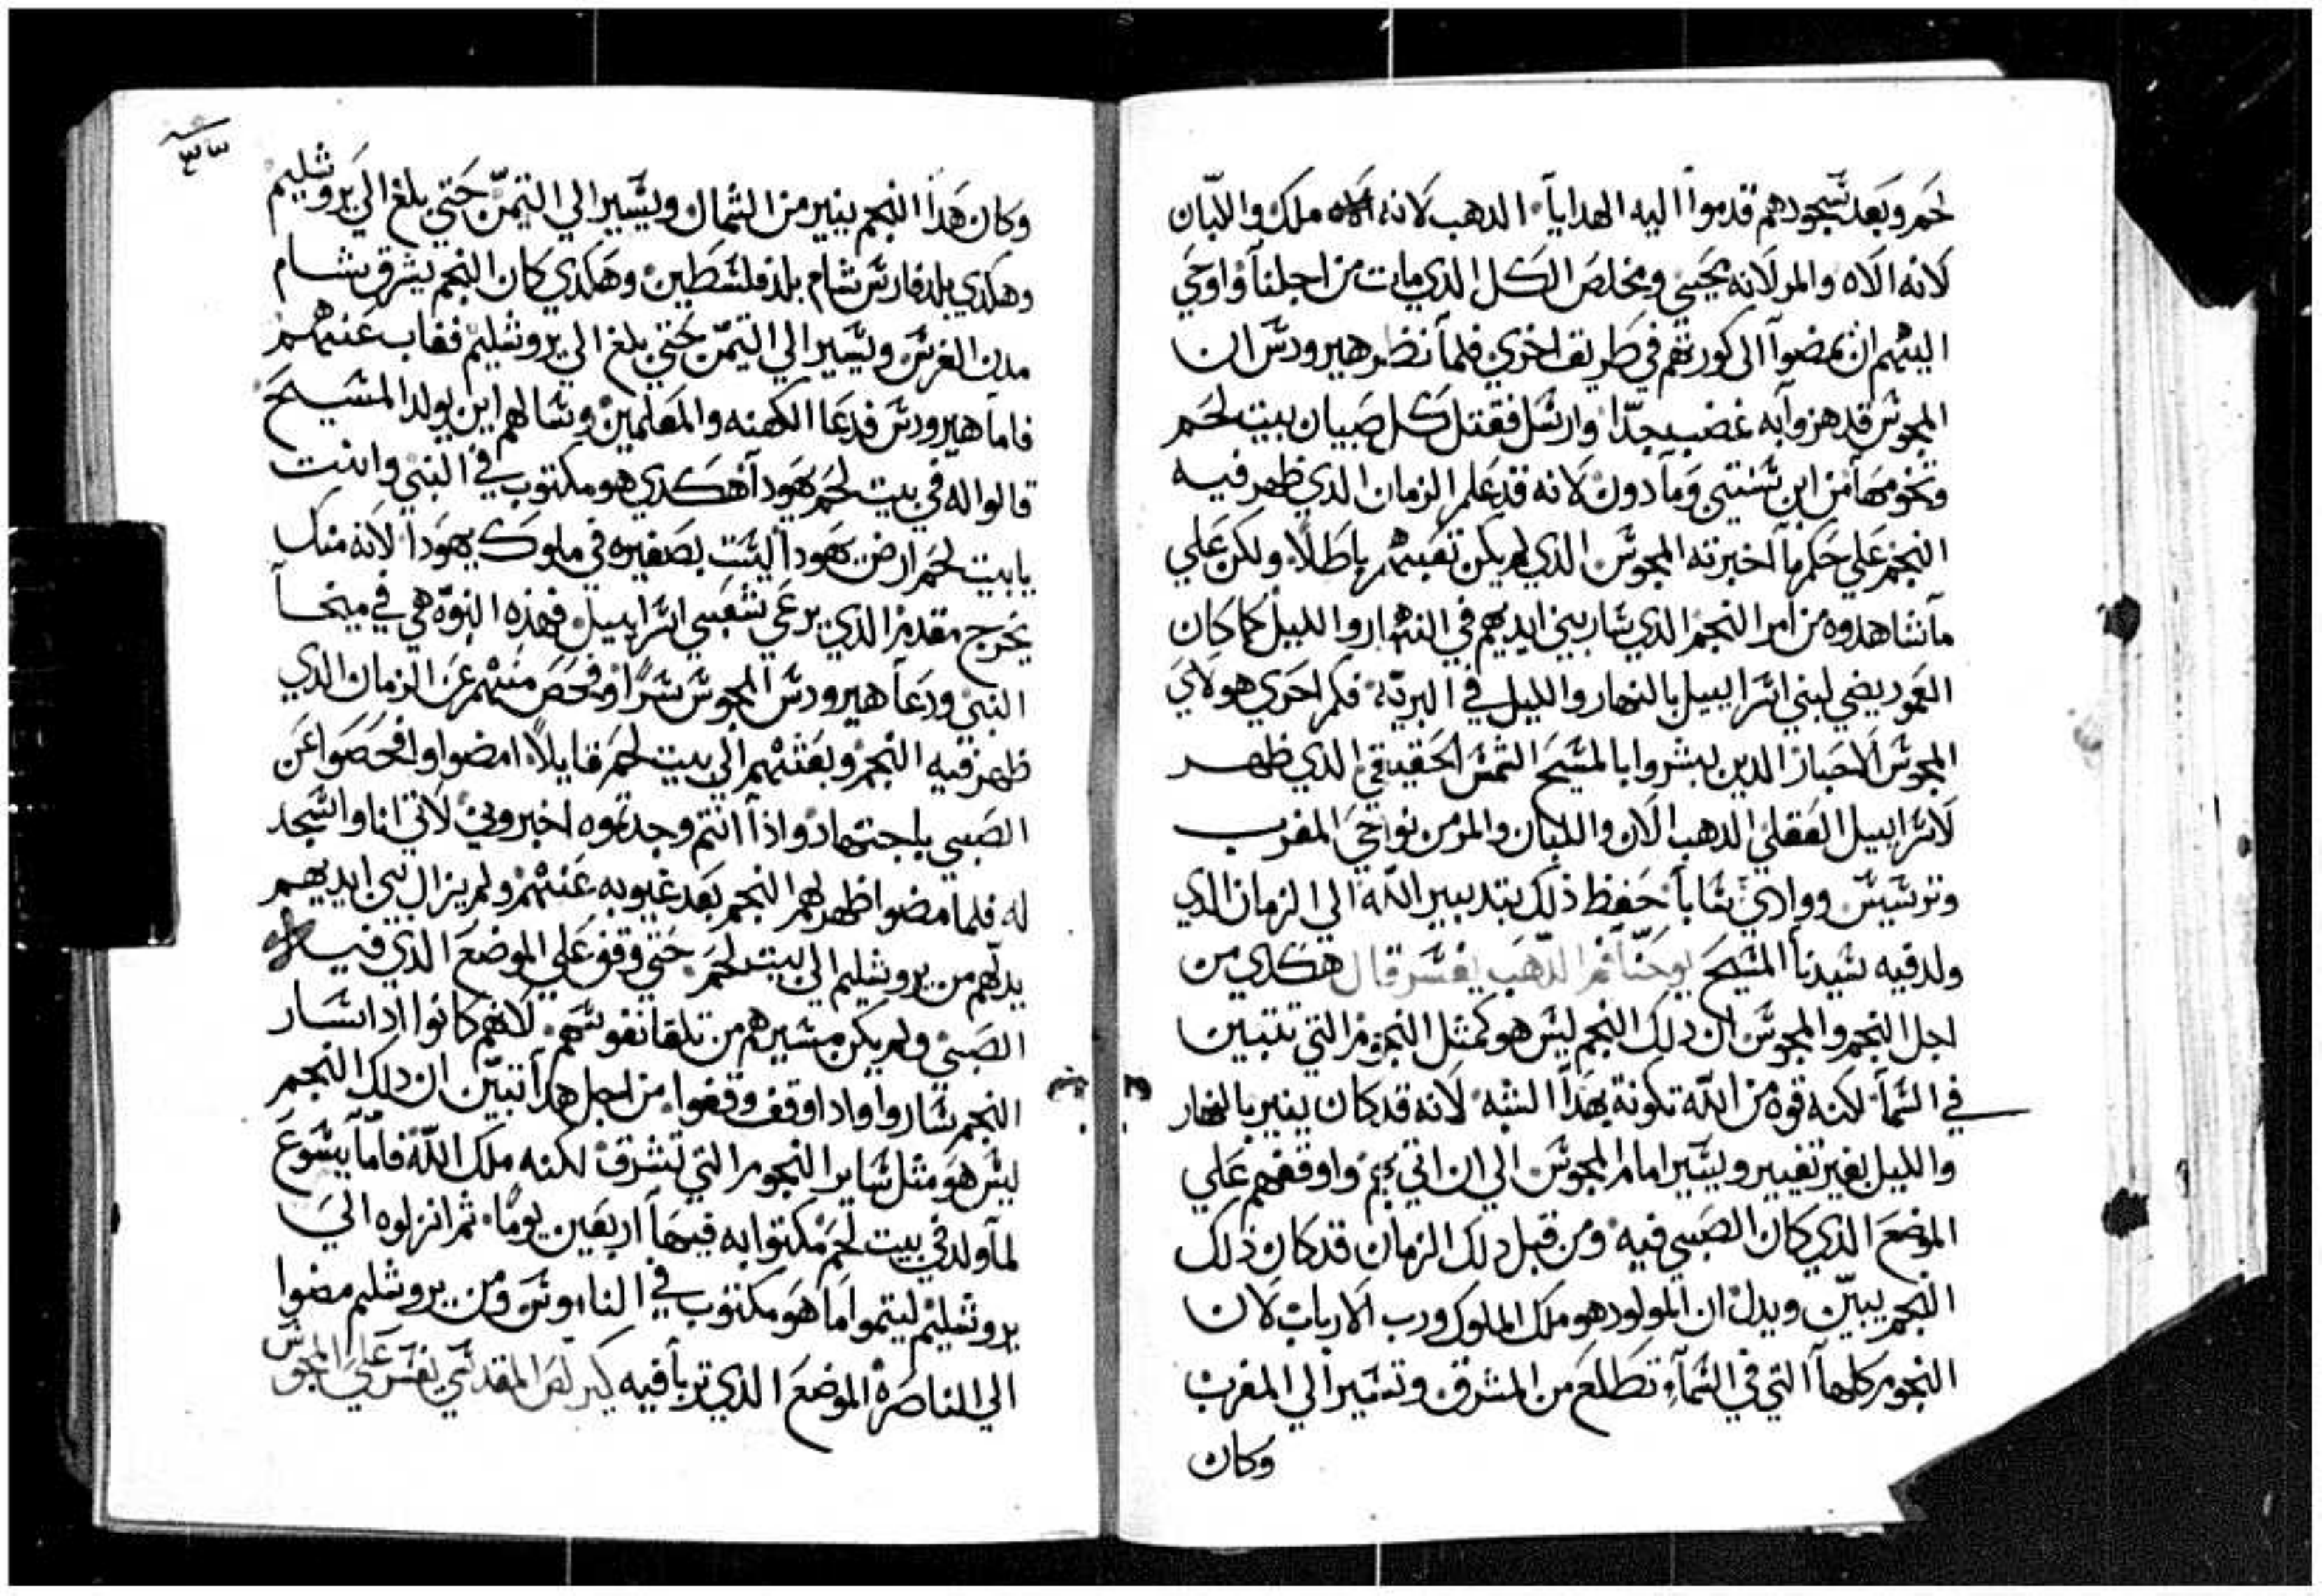 لحم وبعد سجودهم قدموا اليه الهدايا الدهب لانه ملك واللبان
لانه الاه والمر لانه يحيي ومخلص الكل الذي مات من اجلنا واوحي
اليهم ان يمضوا الى كورتهم في طريق اخري فلما نظر هيرودس ان
المجوس قد هزوا به غضب جدّا وارسل فقتل كل صبيان بيت لحم
وتخومها من ابن سنتين وما دون لانه قد علم الزمان الذي ظهر فيه
النجم علي حكم ما اخبرته المجوس الذي لم يكن تعبهم باطلاً ولكن علي
ما شاهدوه من امر النجم الذي سار بين ايديهم في النهار والليل كما كان
العمود يضي لبني اسراييل بالنهار والليل في البريّة فكم احري هولاي
المجوس الاحبار الدين بشروا بالمسيح الشمس الحقيقي الذي ظهر
لاسراييل العقلي الدهب الان واللبان والمر من نواحي المغرب
وترسيس ووادي سابا حفظ ذلك بتدبير الله الي الزمان الذي
ولد فيه سيدنا المسيح يوحنّا فم الدّهب يفسر قال هكدي من
اجل النجم والمجوس ان دلك النجم ليس هو كمثل النجوم التي تتبين
في السما لكنه قوه من الله تكونة بهدا الشبه لانه قد كان ينير بالنهار
والليل بغير تغيير ويسير امام المجوس الي ان اتي بهم واوقفهم علي
الموضع الذي كان الصبي فيه ومن قبل دلك الزمان قد كان ذلك
النجم يبيّن ويدل ان المولود هو ملك الملوك ورب الارباب لان
النجوم كلها التي في السمآء تطلع من المشرق وتسير الي المغرب
وكان
٣٣
وكان هدا النجم ينير من الشمال ويسير الي التيمّن حتي بلغ الي يروشليم
وهكدي بلد فارس شام بلد فلسطين وهكدي كان النجم يشرق شام
مدن الفرس ويسير الي التيمّن حتي بلغ الي يروشليم فغاب عنهم
فاما هيرودس فدعا الكهنه والمعلمين وسالهم اين يولد المسيح
قالوا له في بيت لحم يهودا هكدي هو مكتوب في النبي وانت
يا بيت لحم ارض يهودا ليست بصغيره في ملوك يهودا لانه منك
يخرج مقدم الذي يرعي شعبي اسراييل فهذه النبوّه هي في ميخا
النبي ودعا هيرودس المجوس سرًا وفحص منهم عن الزمان الذي
ظهر فيه النجم وبعثهم الي بيت لحم قايلاً امضوا وافحصوا عن
الصبي باجتهاد واذا انتم وجدتموه اخبروني لاتي انا واسجد
له فلما مضوا ظهر لهم النجم بعد غيوبه عنهم ولم يزال بين ايديهم
يدلّهم من يروشليم الي بيت لحم حتي وقف علي الموضع الذي فيه
الصبي ولم يكن مسيرهم من تلقا نفوسهم لانهم كانوا ادا سار
النجم ساروا وادا وقف وقفوا من اجل هدا تبيّن ان دلك النجم
ليس هو مثل ساير النجوم التي تشرق لكنه ملك الله فامّا يسوع
لما ولد في بيت لحم مكتوا به فيها اربعين يومًا ثم انزلوه الي
يروشليم ليتموا ما هو مكتوب في الناموس ومن يروشليم مضوا
الي الناصرة الموضع الذي تربا فيه كيرلص المقدسي يفسر علي المجوس